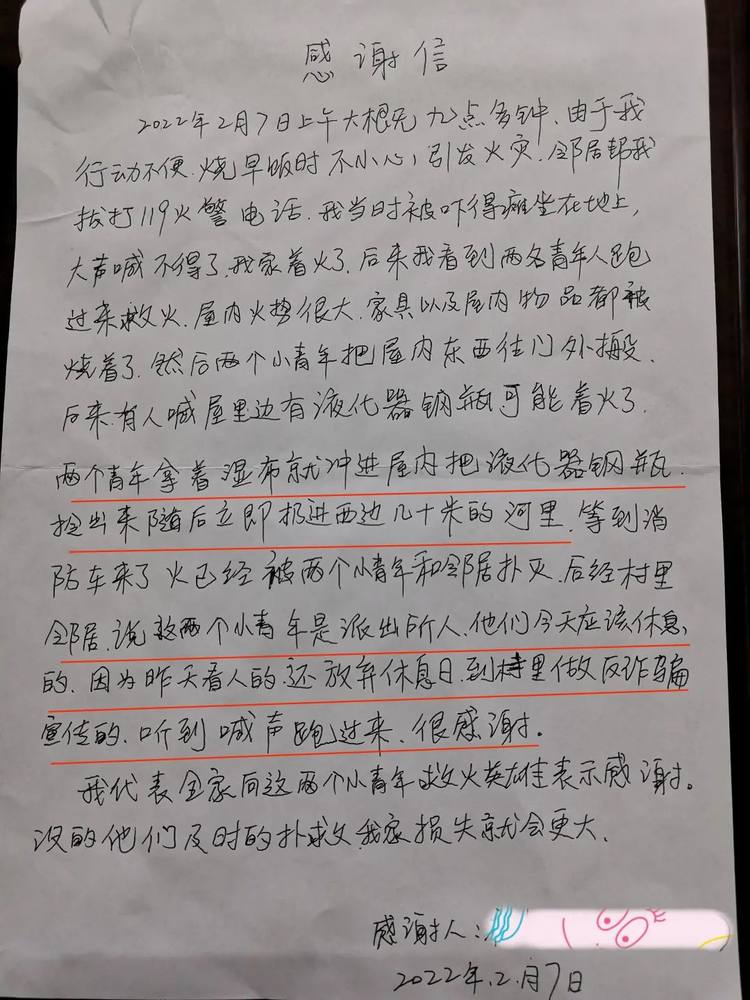 感谢信
2022年2月7日上午大概九点多钟，由于我
行动不便.烧早饭时不小心，引发火灾.邻居帮我
拔打119火警电话.我当时被吓得瘫坐在地上，
大声喊不得了.我家着火了.后来我看到两名青年人跑
过来救火.屋内火势很大.家具以及屋内物品都被
烧着了.然后两个小青年把屋内东西往门外搬.
后来有人喊屋里边有液化器钢瓶可能着火了.
两个青年拿着湿布就冲进屋内把液化器钢瓶.
抢出来随后立即扔进西边几十米的河里.等到消
防车来了火已经被两个小青年和邻居扑灭.后经村里
邻居.说这两个小青年是派出所人.他们今天应该休息
的.因为昨天看人的.还放弃休息日.到村里做反诈骗
宣传的.听到喊声跑过来.很感谢。
我代表全家向这两个小青年救火英雄表示感谢。
没的他们及时的扑救我家损失就会更大.
感谢人：
2022年.2.月7日